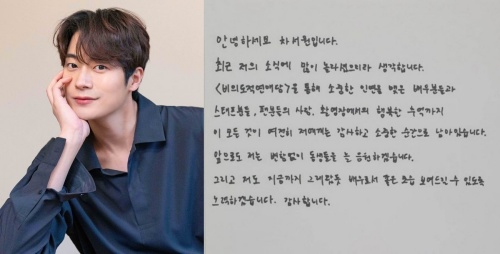 안녕하세요 차서원입니다.
최근 저의 소식에 많이 놀라셨으리라 생각합니다.
<비의도적연애담>을 통해 소중한 인연을 맺은 배우분들과
스태프분들, 팬분들의 사랑, 촬영장에서의 행복한 추억까지
이 모든 것이 여전히 저에게는 감사하고 소중한 순간으로 남아있습니다.
앞으로도 저는 변함없이 동병동을 늘 응원하겠습니다.
그리고 저도 지금까지 그래왔듯 배우로서 좋은 모습 보여드릴 수 있도록
노력하겠습니다. 감사합니다.